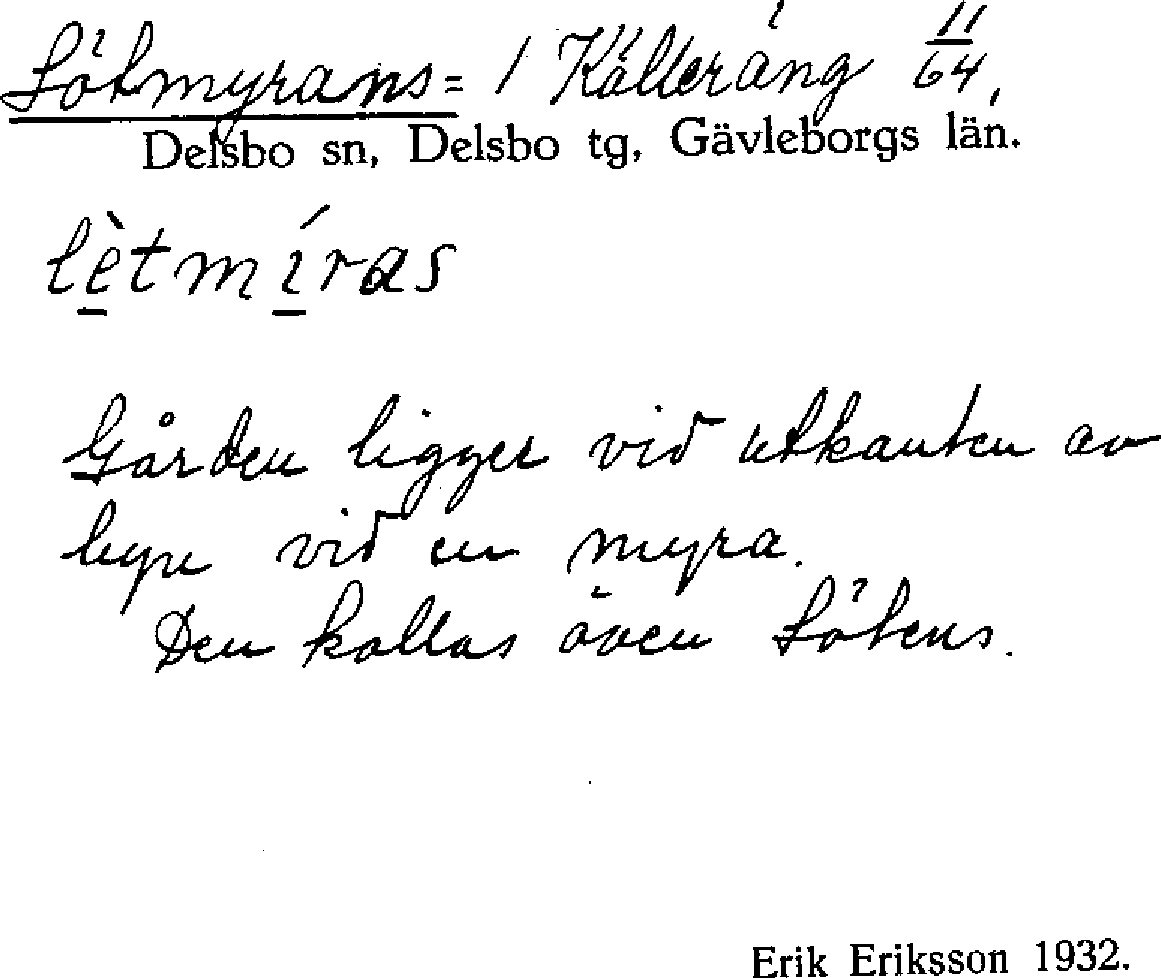 Lötmyrans = 1 Källeräng 11/64,
Delsbo sn, Delsbo tg, Gävleborgs län.
lètmíras
Gården ligger vid utkanten av
byn vid en myra.
Den kallas även Lötens.
Erik Eriksson 1932.